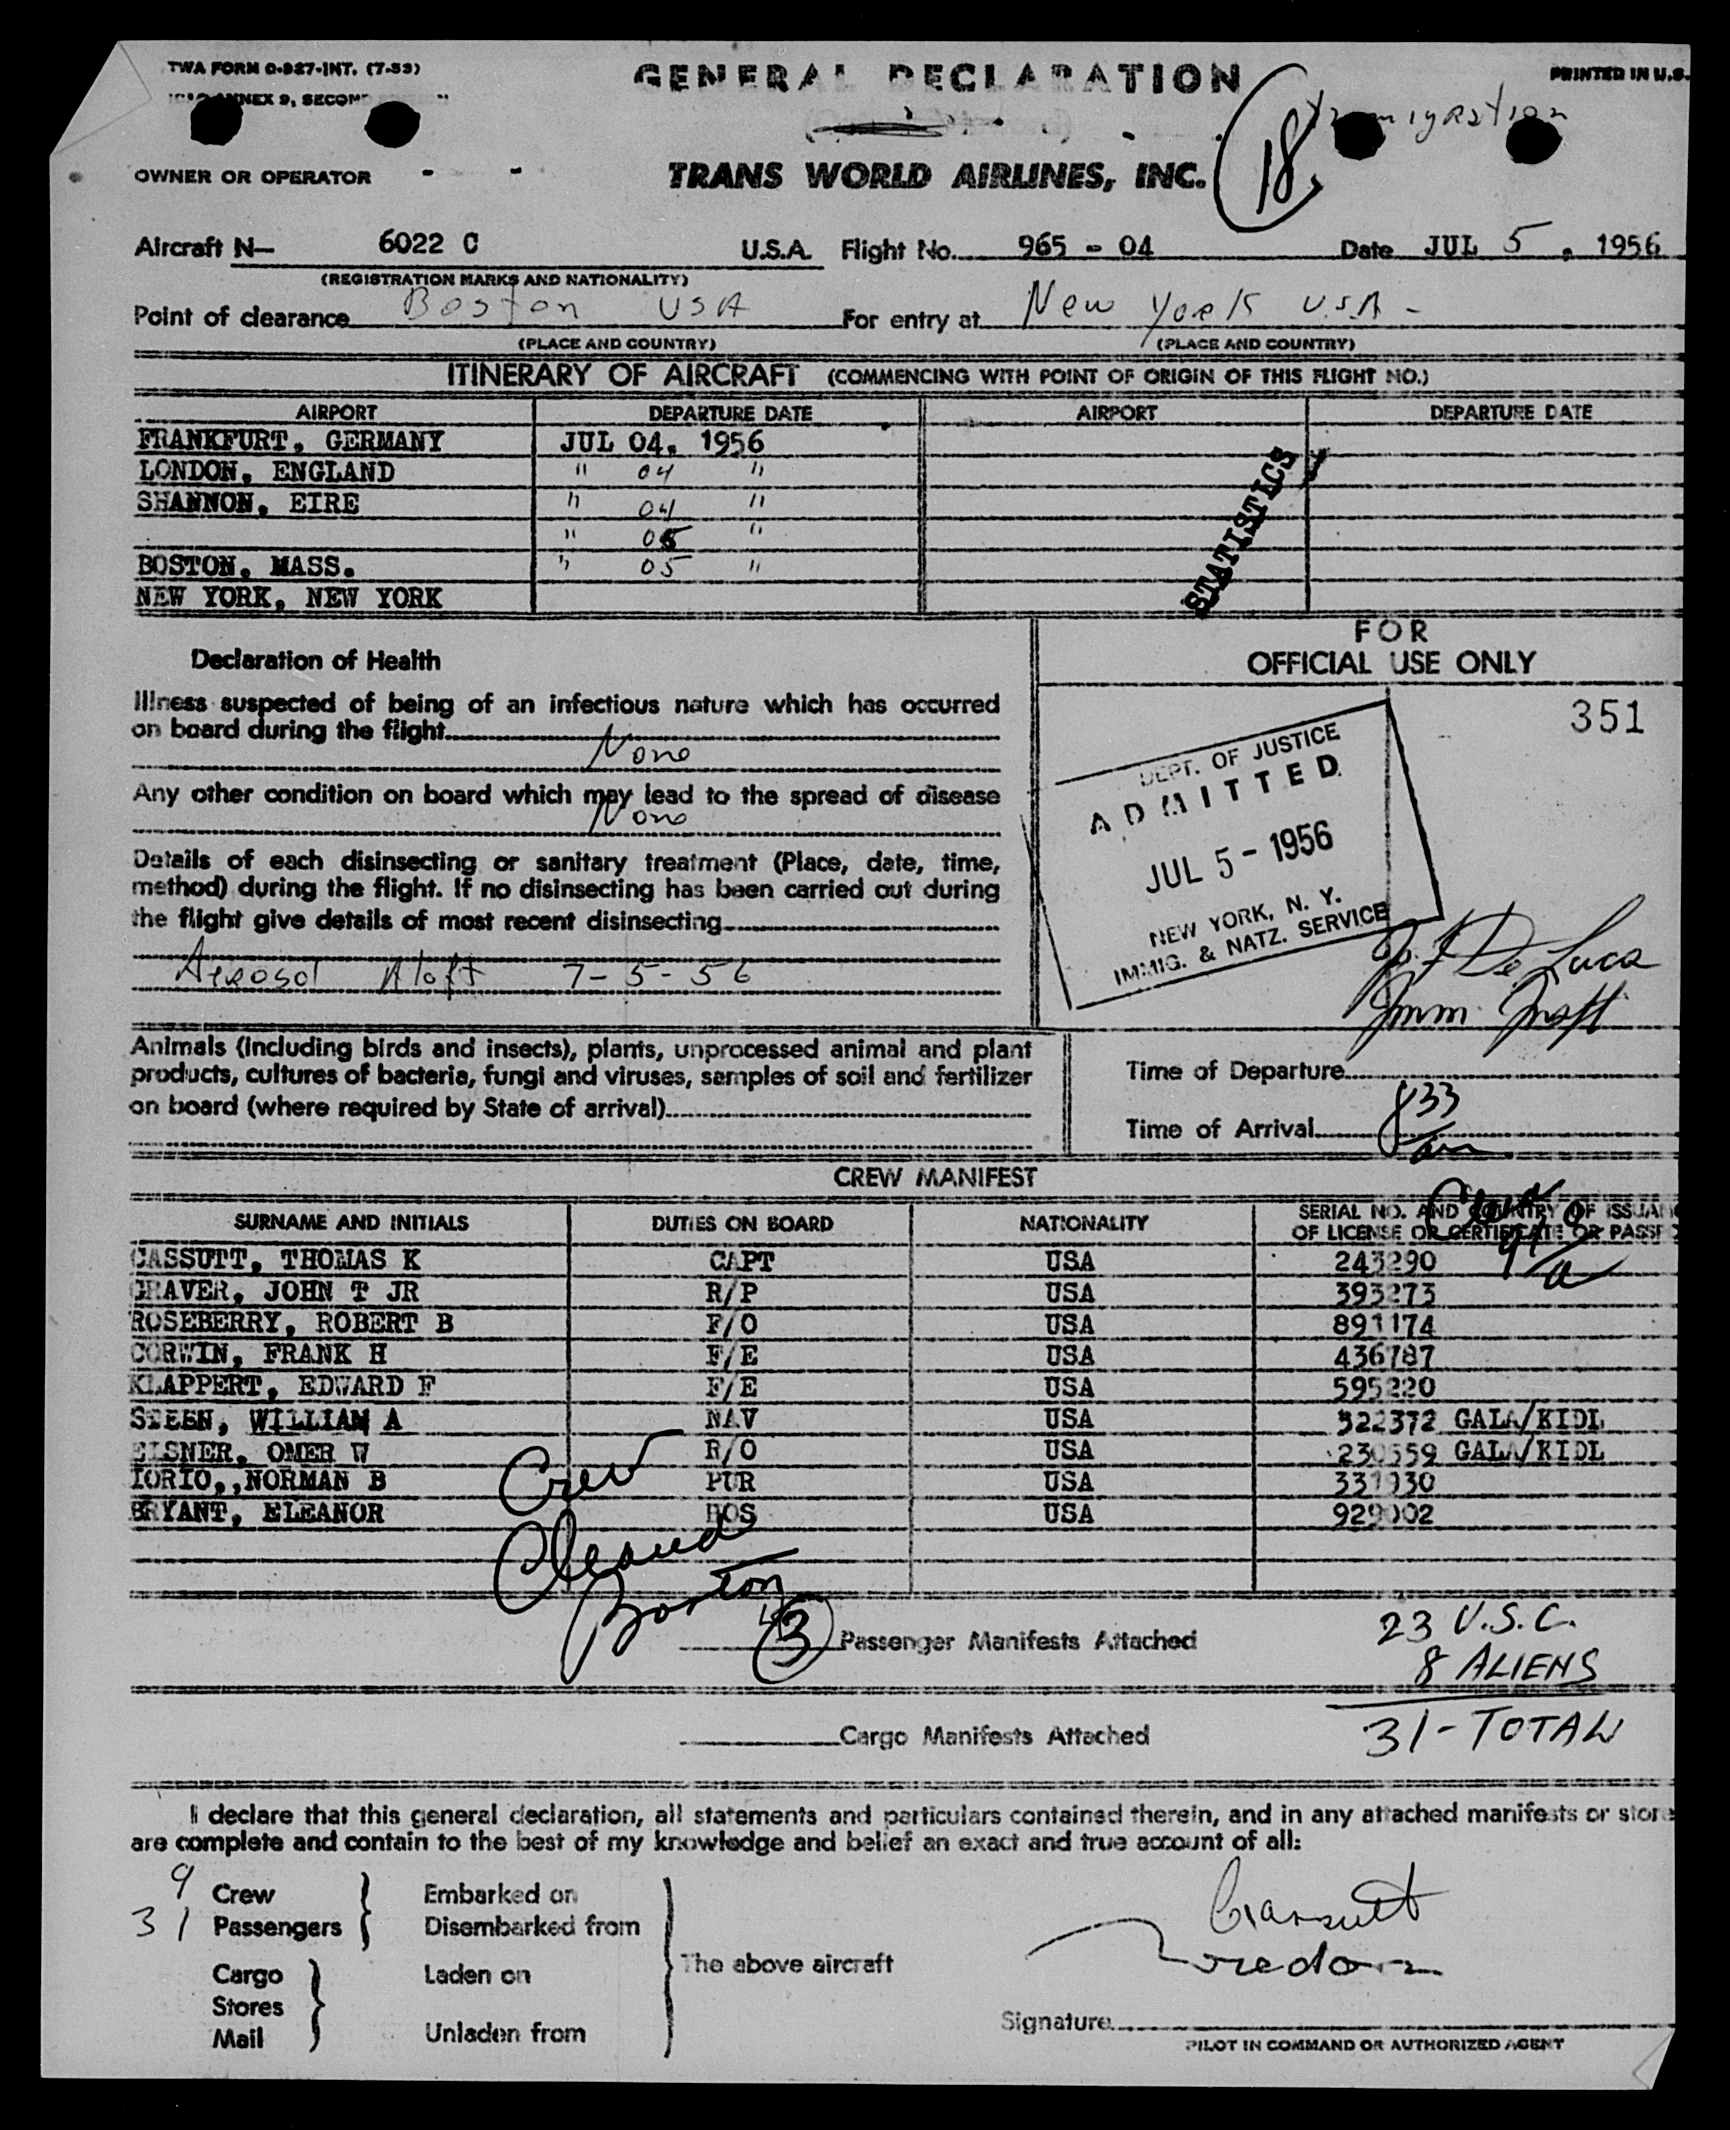 TWA FORM O-927-INT. (7-53)
ANNEX 9, SECOND
GENERAL DECLARATION
PRINTED IN U.S.
Immigration
18
OWNER OR OPERATOR - -
TRANS WORLD AIRLINES, INC.
Aircraft N— 6022 C U.S.A. Flight No. 965 - 04 Date JUL 5, 1956
(REGISTRATION MARKS AND NATIONALITY)
Point of clearance Boston USA For entry at New York U.S.A -
(PLACE AND COUNTRY) (PLACE AND COUNTRY)
ITINERARY OF AIRCRAFT (COMMENCING WITH POINT OF ORIGIN OF THIS FLIGHT NO.)
AIRPORT DEPARTURE DATE AIRPORT DEPARTURE DATE
FRANKFURT, GERMANY JUL 04, 1956
LONDON, ENGLAND " 04 "
SHANNON, EIRE " 04 "
" 05 "
BOSTON, MASS. " 05 "
NEW YORK, NEW YORK
STATISTICS
Declaration of Health
Illness suspected of being of an infectious nature which has occurred
on board during the flight
None
Any other condition on board which may lead to the spread of disease
None
Details of each disinsecting or sanitary treatment (Place, date, time,
method) during the flight. If no disinsecting has been carried out during
the flight give details of most recent disinsecting
Aerosol Aloft 7-5-56
FOR
OFFICIAL USE ONLY
351
DEPT. OF JUSTICE
ADMITTED
JUL 5 - 1956
NEW YORK, N. Y.
IMMIG. & NATZ. SERVICE
De Luca
Imm. Insp
Animals (including birds and insects), plants, unprocessed animal and plant
products, cultures of bacteria, fungi and viruses, samples of soil and fertilizer
on board (where required by State of arrival)
Time of Departure
Time of Arrival 833 am
CREW MANIFEST
SURNAME AND INITIALS DUTIES ON BOARD NATIONALITY SERIAL NO. AND COUNTRY OF ISSUAN
OF LICENSE OR CERTIFICATE OR PASSPO
CASSUTT, THOMAS K CAPT USA 243290
GRAVER, JOHN T JR R/P USA 393273
ROSEBERRY, ROBERT B F/O USA 891174
CORWIN, FRANK H F/E USA 436787
KLAPPERT, EDWARD F F/E USA 595220
STEEN, WILLIAM A NAV USA 322372 GALA/KIDL
ELSNER, OMER W R/O USA 230559 GALA/KIDL
IORIO,,NORMAN B PUR USA 331930
BRYANT, ELEANOR HOS USA 929002
Crew
Cleared
Boston
3 Passenger Manifests Attached
23 U.S.C.
8 ALIENS
31 - TOTAL
Cargo Manifests Attached
I declare that this general declaration, all statements and particulars contained therein, and in any attached manifests or store
are complete and contain to the best of my knowledge and belief an exact and true account of all:
9 Crew Embarked on
31 Passengers Disembarked from
The above aircraft
Cargo Laden on
Stores
Mail Unladen from
Cassutt
Signature
PILOT IN COMMAND OR AUTHORIZED AGENT